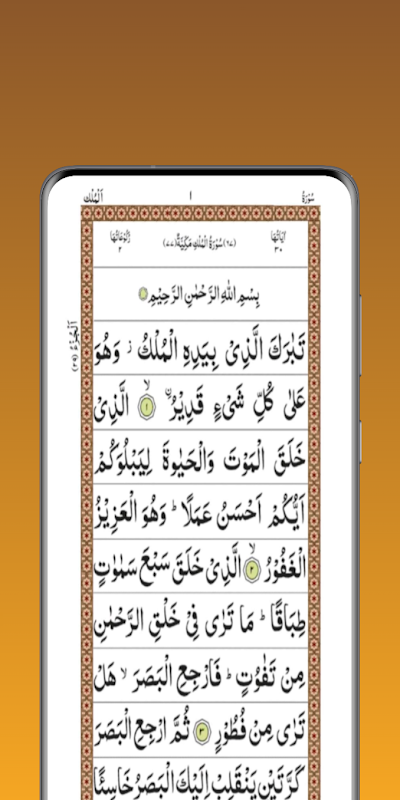 سُوْرَةُ ١ اَلْمُلْك
اٰيَاتُهَا ٣٠ (٦٧) سُوْرَةُ الْمُلْكِ مَكِّيَّةٌ (٧٧) رُكُوْعَاتُهَا ٢
بِسْمِ اللّٰهِ الرَّحْمٰنِ الرَّحِيْمِ
تَبٰرَكَ الَّذِىْ بِيَدِهِ الْمُلْكُ ز وَهُوَ
اَلْجُزْءُ (٢٩)
عَلٰى كُلِّ شَىْءٍ قَدِيْرُ ۙ ١ الَّذِىْ
خَلَقَ الْمَوْتَ وَالْحَيٰوةَ لِيَبْلُوَكُمْ
اَيُّكُمْ اَحْسَنُ عَمَلًا ؕ وَهُوَ الْعَزِيْزُ
الْغَفُوْرُ ۙ ٢ الَّذِىْ خَلَقَ سَبْعَ سَمٰوٰتٍ
طِبَاقًا ؕ مَا تَرٰى فِىْ خَلْقِ الرَّحْمٰنِ
مِنْ تَفٰوُتٍ ؕ فَارْجِعِ الْبَصَرَ ۙ هَلْ
تَرٰى مِنْ فُطُوْرٍ ٣ ثُمَّ ارْجِعِ الْبَصَرَ
كَرَّتَيْنِ يَنْقَلِبْ اِلَيْكَ الْبَصَرُ خَاسِئًا